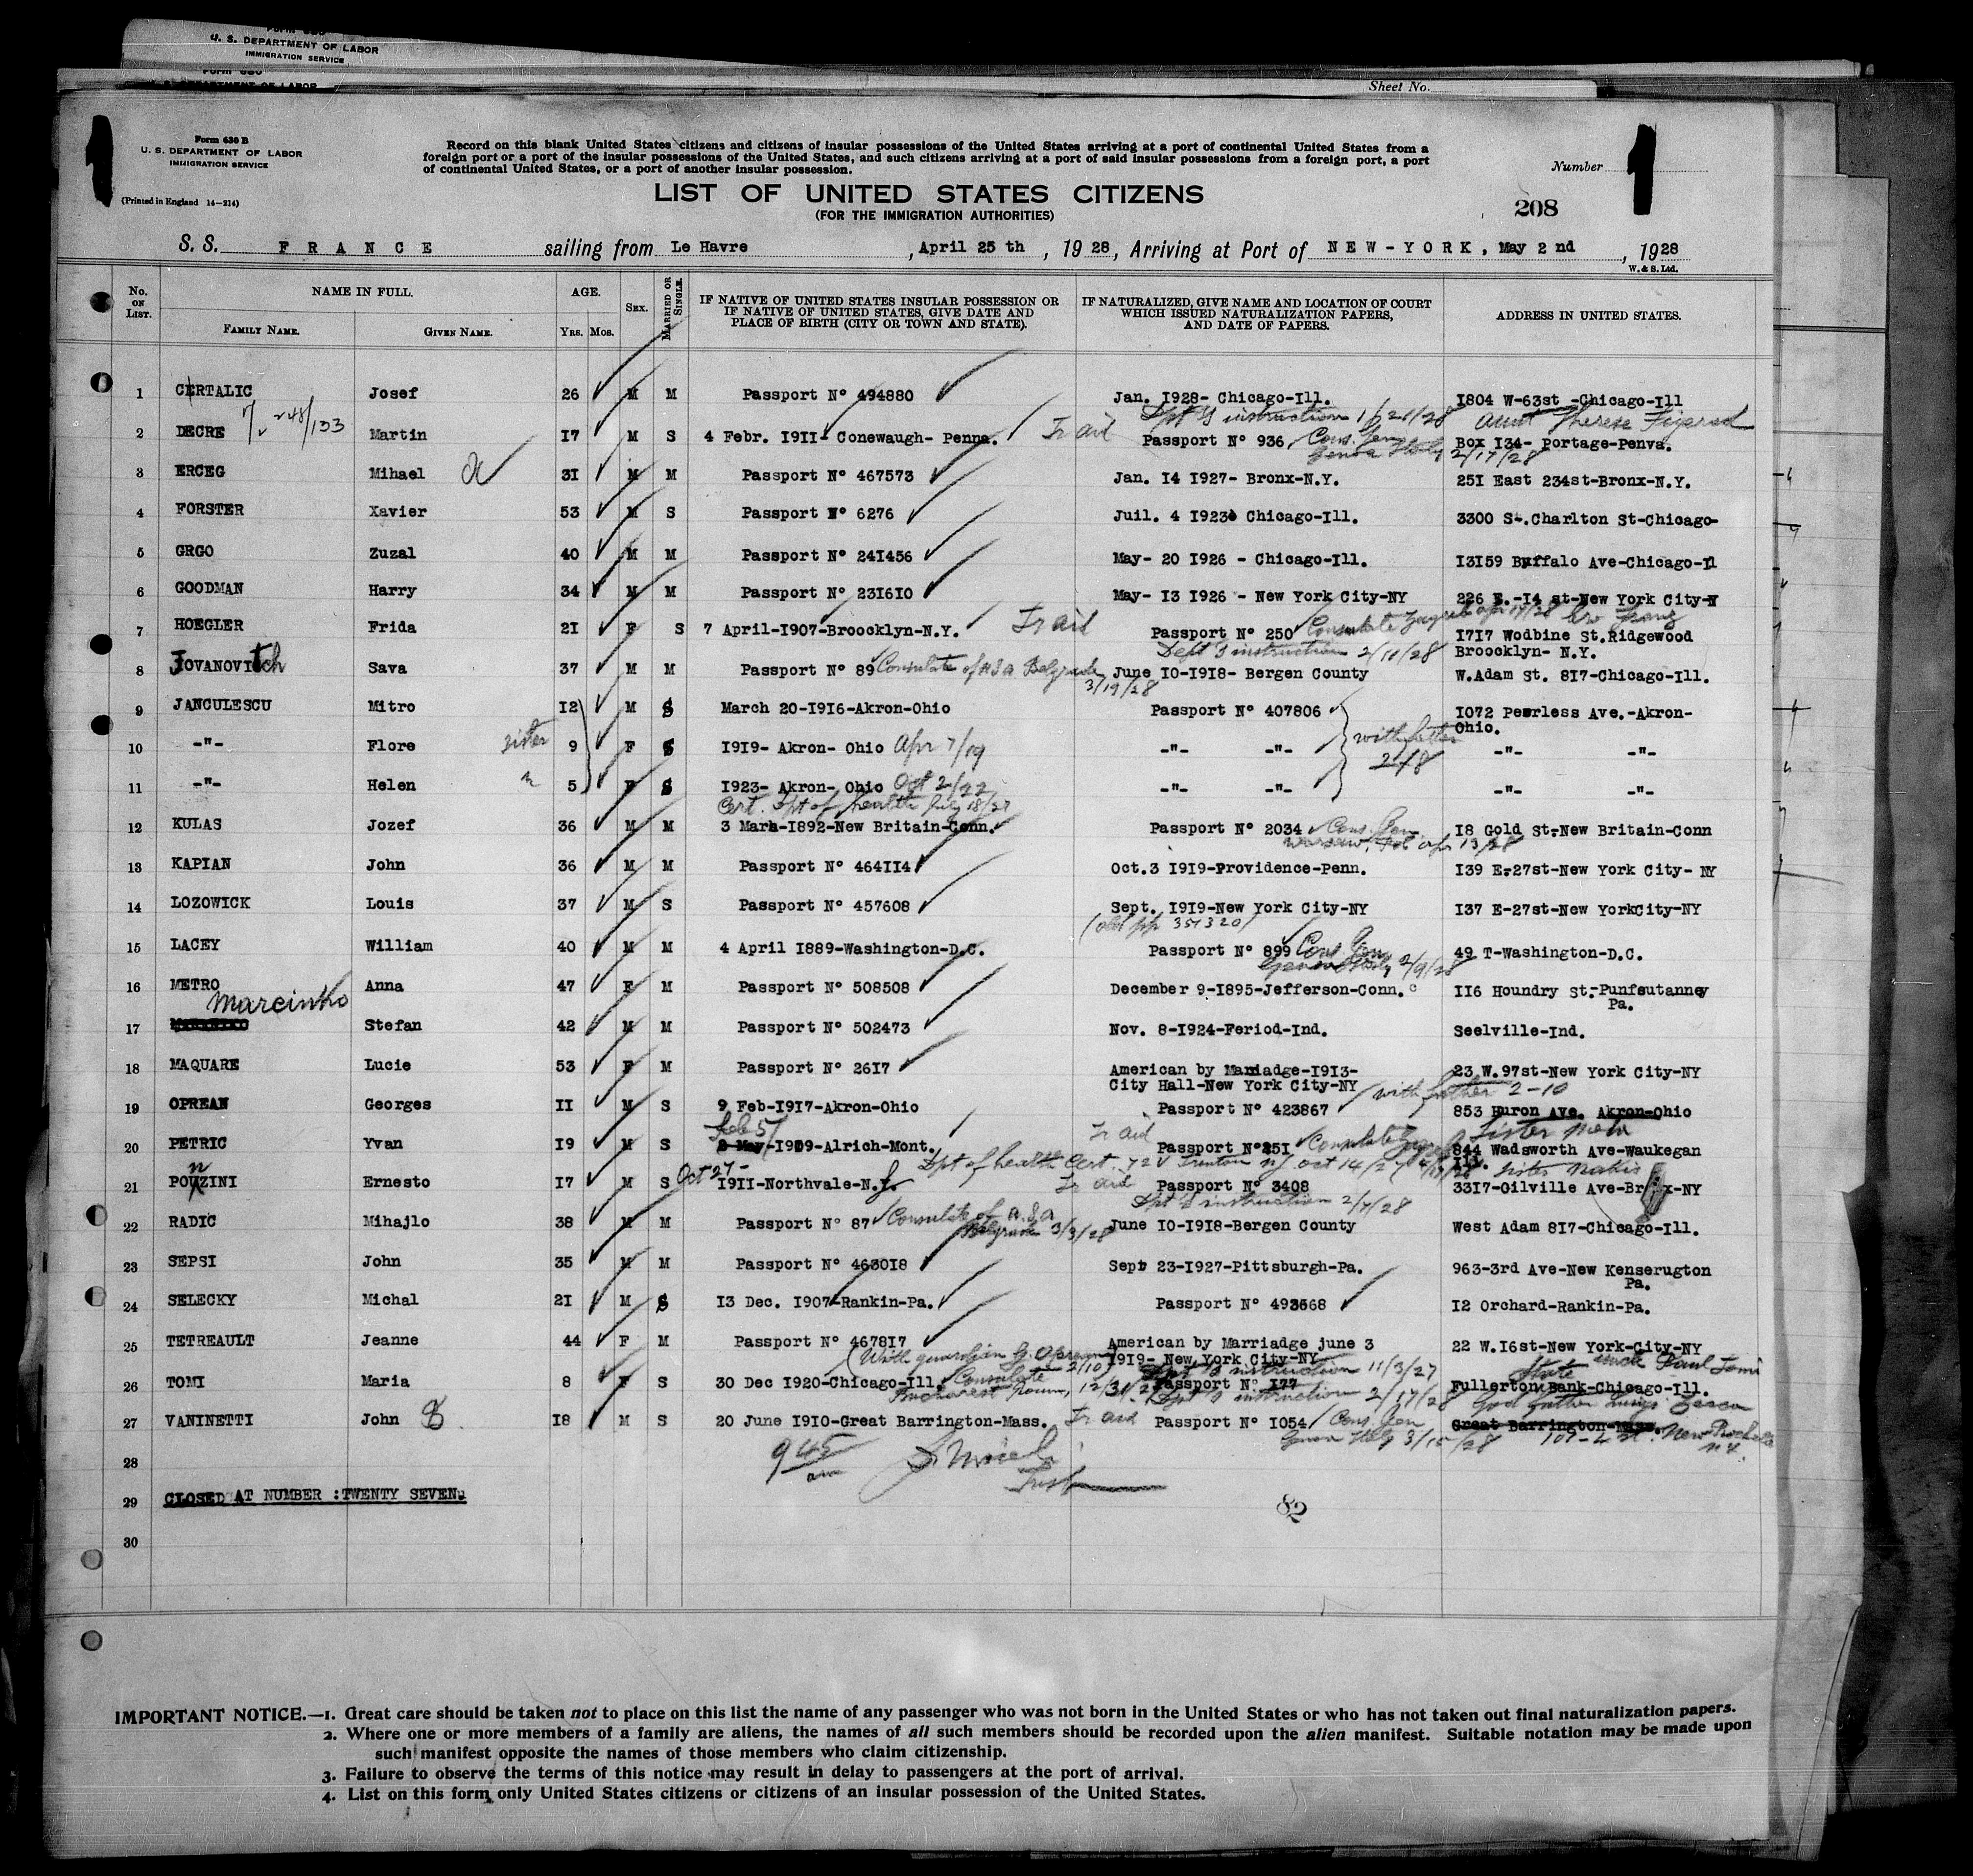 Form 630
U. S. DEPARTMENT OF LABOR
IMMIGRATION SERVICE
Form 630
U. S. DEPARTMENT OF LABOR
Sheet No.
1
Form 630 B
U. S. DEPARTMENT OF LABOR
IMMIGRATION SERVICE
(Printed in England 14—214)
Record on this blank United States citizens and citizens of insular possessions of the United States arriving at a port of continental United States from a
foreign port or a port of the insular possessions of the United States, and such citizens arriving at a port of said insular possessions from a foreign port, a port
of continental United States, or a port of another insular possession.
Number 1
LIST OF UNITED STATES CITIZENS
(FOR THE IMMIGRATION AUTHORITIES)
208
S. S. FRANCE sailing from Le Havre, April 25 th, 1928, Arriving at Port of NEW-YORK, May 2 nd, 1928
W. & S. Ltd.
No. ON LIST. NAME IN FULL. FAMILY NAME. GIVEN NAME. AGE. Yrs. Mos. SEX. MARRIED OR SINGLE. IF NATIVE OF UNITED STATES INSULAR POSSESSION OR IF NATIVE OF UNITED STATES, GIVE DATE AND PLACE OF BIRTH (CITY OR TOWN AND STATE). IF NATURALIZED, GIVE NAME AND LOCATION OF COURT WHICH ISSUED NATURALIZATION PAPERS, AND DATE OF PAPERS. ADDRESS IN UNITED STATES.
1 CERTALIC Josef 26 M M Passport N° 494880 Jan. I928- Chicago-Ill. I804 W-63st -Chicago-Ill
Dpt's instruction 1/21/28 Aunt Therese
2 DECRE 248/133 Martin I7 M S 4 Febr. I9II- Conewaugh- Penna. Passport N° 936 Cons. Gen Box I34- Portage-Penva.
Genoa Italy 2/17/28
3 ERCEG Mihael 3I M M Passport N° 467573 Jan. I4 I927- Bronx-N.Y. 25I East 234st-Bronx-N.Y.
4 FORSTER Xavier 53 M S Passport N° 6276 Juil. 4 I923 Chicago-Ill. 3300 S-.Charlton St-Chicago-
5 GRGO Zuzal 40 M M Passport N° 24I456 May- 20 I926 - Chicago-Ill. I3I59 Buffalo Ave-Chicago-Il
6 GOODMAN Harry 34 M M Passport N° 23I6I0 May- I3 I926 - New York City-NY 226 E.-I4 st-New York City-N
7 HOEGLER Frida 2I F S 7 April-I907-Broocklyn-N.Y. Passport N° 250 Consulate Zagreb apr 17/28 I7I7 Wodbine St.Ridgewood
Dept's instruction 2/11/28 Broocklyn- N.Y.
8 JOVANOVItch Sava 37 M M Passport N° 89 Consulate of USA Belgrade 3/19/28 June I0-I9I8- Bergen County W.Adam St. 8I7-Chicago-Ill.
9 JANCULESCU Mitro I2 M S March 20-I9I6-Akron-Ohio Passport N° 407806 I072 Peerless Ave.-Akron-
Ohio.
10 -"- Flore sister 9 F S I9I9- Akron- Ohio Apr 7/19 -"- -"- with father -"- -"-
2/8
11 -"- Helen 5 F S I923- Akron- Ohio Oct 2/22 -"- -"- -"- -"-
Cert. Dpt of health July 18/27
12 KULAS Jozef 36 M M 3 Marh-I892-New Britain-Conn. Passport N° 2034 Cons. Gen I8 Gold St-New Britain-Conn
Warsaw, Pol apr 13/28
13 KAPIAN John 36 M M Passport N° 464II4 Oct.3 I9I9-Providence-Penn. I39 E-27st-New York City- NY
14 LOZOWICK Louis 37 M S Passport N° 457608 Sept. I9I9-New York City-NY I37 E-27st-New YorkCity-NY
(old pp 351320)
15 LACEY William 40 M M 4 April I889-Washington-D.C. Passport N° 899 Cons Gen 49 T-Washington-D.C.
Genoa Italy 2/9/28
16 METRO Anna 47 F M Passport N° 508508 December 9-I895-Jefferson-Conn. II6 Houndry St-Punfsutanney
Pa.
Marcinko
17 Stefan 42 M M Passport N° 502473 Nov. 8-I924-Feriod-Ind. Seelville-Ind.
18 MAQUARE Lucie 53 F M Passport N° 26I7 American by Marriadge-I9I3- 23 W.97st-New York City-NY
City Hall-New York City-NY with father 2-10
19 OPREAN Georges II M S 9 Feb-I9I7-Akron-Ohio Passport N° 423867 853 Huron Ave. Akron-Ohio
Feb 5/ sister
20 PETRIC Yvan I9 M S 2 May-I909-Alrich-Mont. Passport N°25I Consulate 844 Wadsworth Ave-Waukegan
Ill.
Dpt of health Cert. Trenton NJ Oct 14/27 sister
21 PONZINI Ernesto I7 M S Oct 27- I9II-Northvale-N.J. Passport N° 3408 33I7-Gilville Ave-Bronx-NY
Dpt's instruction 2/7/28
22 RADIC Mihajlo 38 M M Passport N° 87 Consulate of USA Belgrade 3/3/28 June I0-I9I8-Bergen County West Adam 8I7-Chicago-Ill.
23 SEPSI John 35 M M Passport N° 4630I8 Sept 23-I927-Pittsburgh-Pa. 963-3rd Ave-New Kenserugton
Pa.
24 SELECKY Michal 2I M S I3 Dec. I907-Rankin-Pa. Passport N° 493568 I2 Orchard-Rankin-Pa.
25 TETREAULT Jeanne 44 F M Passport N° 4678I7 American by Marriadge june 3 22 W.I6st-New York-City-NY
I9I9- New York City-NY
(With guardian G. Oprean 2/10) Dpt's instruction 11/3/27 State uncle Paul Tomi
26 TOMI Maria 8 F S 30 Dec I920-Chicago-Ill. Consulate Passport N° I77 Fullerton Bank-Chicago-Ill.
Bucharest Roum, 12/31/27 Dpt's instruction 2/17/28 God father
27 VANINETTI John I8 M S 20 June I9I0-Great Barrington-Mass. Passport N° I054 Cons. Gen Great Barrington-Mass.
Genoa Italy 3/15/28 New Rochelle
N.Y.
28
9 45 am
29 CLOSED AT NUMBER :TWENTY SEVEN.
82
30
IMPORTANT NOTICE.—1. Great care should be taken not to place on this list the name of any passenger who was not born in the United States or who has not taken out final naturalization papers.
2. Where one or more members of a family are aliens, the names of all such members should be recorded upon the alien manifest. Suitable notation may be made upon
such manifest opposite the names of those members who claim citizenship.
3. Failure to observe the terms of this notice may result in delay to passengers at the port of arrival.
4. List on this form only United States citizens or citizens of an insular possession of the United States.